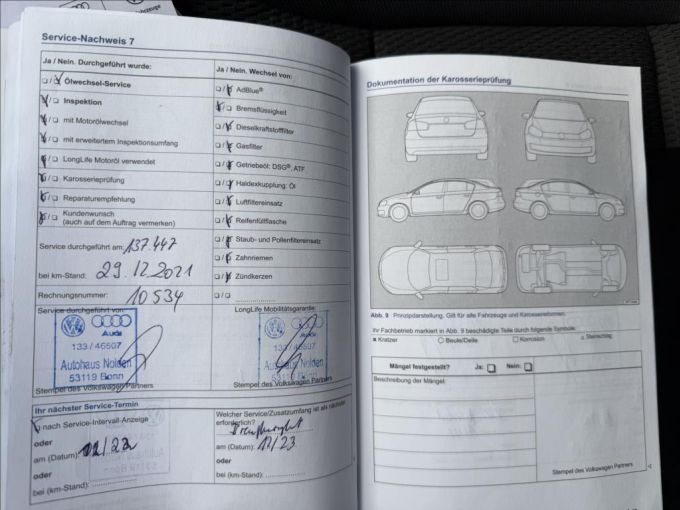 Service-Nachweis 7
Ja / Nein. Durchgeführt wurde:
Ölwechsel-Service
Inspektion
mit Motorölwechsel
mit erweitertem Inspektionsumfang
LongLife Motoröl verwendet
Karosserieprüfung
Reparaturempfehlung
Kundenwunsch
(auch auf dem Auftrag vermerken)
Service durchgeführt am: 137.447
bei km-Stand: 29.12.2021
Rechnungsnummer: 10534
Service durchgeführt von:
Audi
133 / 46507
Autohaus Nolden
53119 Bonn
Stempel des Volkswagen Partners
Ja / Nein. Wechsel von:
AdBlue®
Bremsflüssigkeit
Dieselkraftstofffilter
Gasfilter
Getriebeöl: DSG®, ATF
Haldexkupplung: Öl
Luftfiltereinsatz
Reifenfüllflasche
Staub- und Pollenfiltereinsatz
Zahnriemen
Zündkerzen
LongLife Mobilitätsgarantie:
Audi
133 / 46507
Autohaus Nolden
53119 Bonn
Stempel des Volkswagen Partners
Ihr nächster Service-Termin
nach Service-Intervall-Anzeige
oder
am (Datum): 12/22
oder
bei (km-Stand):
Welcher Service/Zusatzumfang ist als nächster
erforderlich?
am (Datum): 12/23
oder
bei (km-Stand):
Dokumentation der Karosserieprüfung
Abb. 9 Prinzipdarstellung. Gilt für alle Fahrzeuge und Karosserieformen.
Ihr Fachbetrieb markiert in Abb. 9 beschädigte Teile durch folgende Symbole:
Kratzer
Beule/Delle
Korrosion
Steinschlag
Mängel festgestellt? Ja: Nein:
Beschreibung der Mängel:
Stempel des Volkswagen Partners